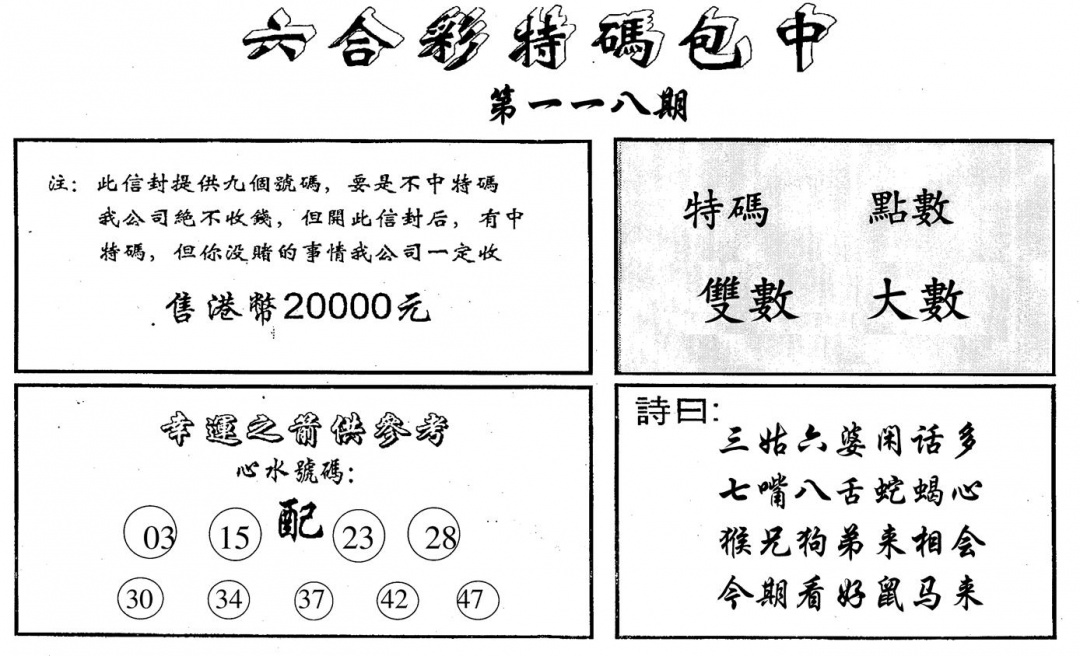 六合彩特碼包中
第一一八期
注：此信封提供九個號碼，要是不中特碼
我公司絕不收錢，但開此信封后，有中
特碼，但你没賭的事情我公司一定收
售港幣20000元
特碼 點數
雙數 大數
幸運之箭供參考
心水號碼：
03 15 配 23 28
30 34 37 42 47
詩曰：
三姑六婆闲话多
七嘴八舌蛇蝎心
猴兄狗弟来相会
今期看好鼠马来